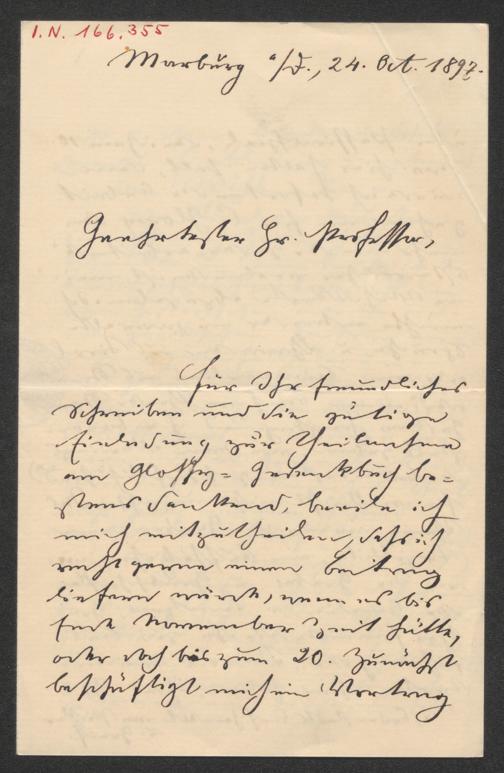 I.N. 166.355
Marburg a/D., 24. Oct. 1897.
Geehrtester Hr. Professor,
Für Ihr freundliches
Schreiben und die gütige
Einladung zur Theilnahme
am Glossy-Gedenkbuch be=
stens dankend, beeile ich
mich mitzutheilen, daß ich
recht gerne einen Beitrag
liefern würde, wenn es bis
Ende November Zeit hätte,
oder doch bis zum 20. Zunächst
beschäftigt mich ein Vortrag